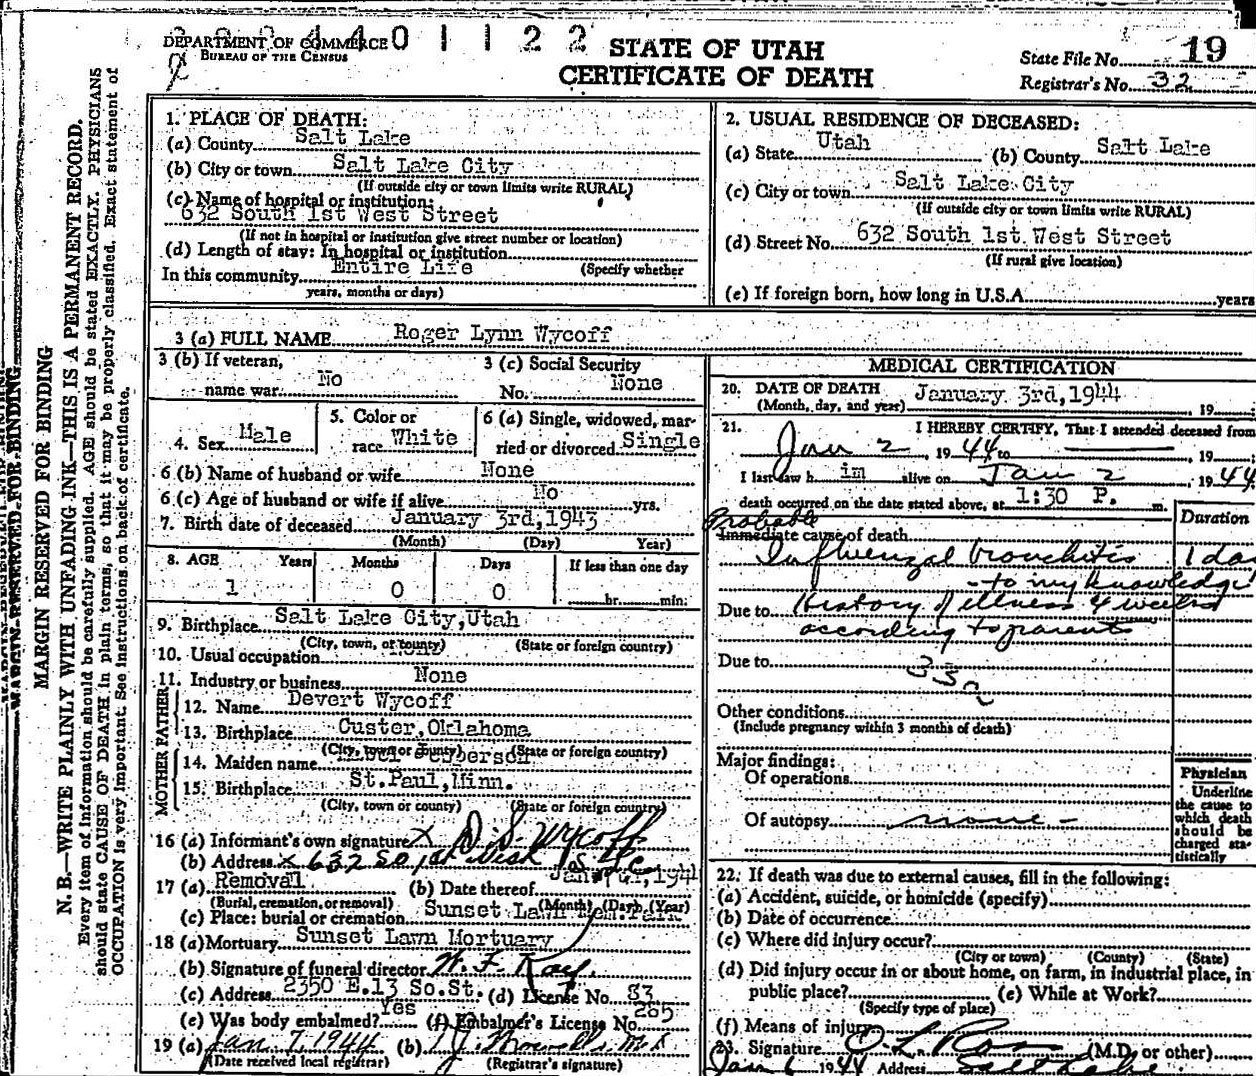 DEPARTMENT OF COMMERCE
BUREAU OF THE CENSUS
4 4 0 1 1 2 2
STATE OF UTAH
CERTIFICATE OF DEATH
State File No. 19
Registrar's No. 32
MARGIN RESERVED FOR BINDING
N. B.—WRITE PLAINLY WITH UNFADING INK—THIS IS A PERMANENT RECORD.
Every item of information should be carefully supplied. AGE should be stated EXACTLY. PHYSICIANS
should state CAUSE OF DEATH in plain terms, so that it may be properly classified. Exact statement of
OCCUPATION is very important. See instructions on back of certificate.
1. PLACE OF DEATH:
(a) County Salt Lake
(b) City or town Salt Lake City
(If outside city or town limits write RURAL)
(c) Name of hospital or institution:
632 South 1st West Street
(If not in hospital or institution give street number or location)
(d) Length of stay: In hospital or institution
In this community Entire Life (Specify whether
years, months or days)
2. USUAL RESIDENCE OF DECEASED:
(a) State Utah (b) County Salt Lake
(c) City or town Salt Lake City
(If outside city or town limits write RURAL)
(d) Street No. 632 South 1st West Street
(If rural give location)
(e) If foreign born, how long in U.S.A. years
3 (a) FULL NAME Roger Lynn Wycoff
3 (b) If veteran,
name war No
3 (c) Social Security
No. None
4. Sex Male
5. Color or
race White
6 (a) Single, widowed, mar-
ried or divorced Single
6 (b) Name of husband or wife None
6 (c) Age of husband or wife if alive No yrs.
7. Birth date of deceased January 3rd, 1943
(Month) (Day) Year)
8. AGE Years Months Days If less than one day
1 0 0 hr. min.
9. Birthplace Salt Lake City, Utah
(City, town, or county) (State or foreign country)
10. Usual occupation None
11. Industry or business None
FATHER
12. Name Devert Wycoff
13. Birthplace Custer, Oklahoma
(City, town or county) (State or foreign country)
MOTHER
14. Maiden name
15. Birthplace St. Paul, Minn.
(City, town or county) (State or foreign country)
16 (a) Informant's own signature X D. S. Wycoff
(b) Address X 632 So 1st West S L C
17 (a) Removal (b) Date thereof
(Burial, cremation, or removal) (Month) (Day) (Year)
(c) Place: burial or cremation Sunset Lawn Mem. Park
18 (a) Mortuary Sunset Lawn Mortuary
(b) Signature of funeral director
(c) Address 2350 E. 13 So. St. (d) License No. 83
(e) Was body embalmed? Yes (f) Embalmer's License No. 265
19 (a) Jan 7, 1944 (b)
(Date received local registrar) (Registrar's signature)
MEDICAL CERTIFICATION
20. DATE OF DEATH January 3rd, 1944
(Month, day, and year) , 19
21. I HEREBY CERTIFY, That I attended deceased from
Jan 2, 19 44 to , 19 ;
I last saw h im alive on Jan 2, 19 44
death occurred on the date stated above, at 1:30 P. m.
Duration
Probable
Immediate cause of death
Influenzal bronchitis 1 day
- to my knowledge
Due to History of illness 4 weeks
according to parents
Due to
33a
Other conditions
(Include pregnancy within 3 months of death)
Major findings:
Of operations
Of autopsy none -
Physician
Underline
the cause to
which death
should be
charged sta-
tistically
22. If death was due to external causes, fill in the following:
(a) Accident, suicide, or homicide (specify)
(b) Date of occurrence
(c) Where did injury occur?
(City or town) (County) (State)
(d) Did injury occur in or about home, on farm, in industrial place, in
public place? (e) While at Work?
(Specify type of place)
(f) Means of injury
23. Signature O. L. Ross (M.D. or other)
Jan 6 19 44 Address Salt Lake